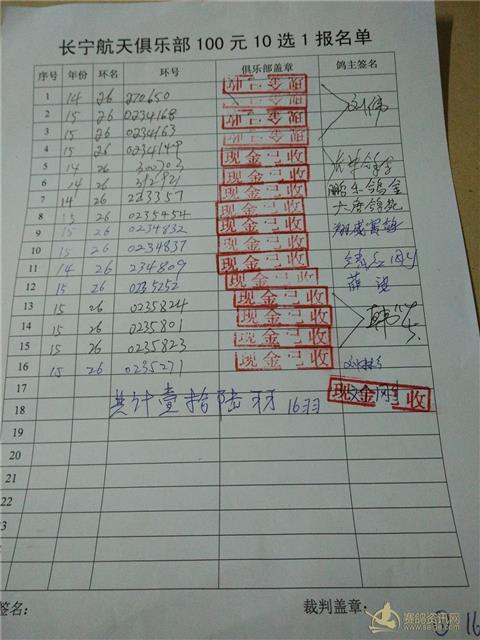 长宁航天俱乐部100元10选1报名单
序号 年份 环名 环号 俱乐部盖章 鸽主签名
1 14 26 220650
2 15 26 0234168 现金已收
3 15 26 0234163
4 15 26 0234149 现金已收
5 14 26 现金已收
6 14 26 现金已收
7 14 26 223357 现金已收 鹏乐鸽舍
8 15 26 0235454 现金已收 大唐鸽苑
9 15 26 0234832 现金已收
10 15 26 0234837 现金已收
11 14 26 234809 现金已收
12 15 26 0235252 现金已收
13 15 26 0235824 现金已收
14 15 26 0235801 现金已收
15 15 26 0235823 现金已收
16 15 26 0235271
17 现金已收
18 共计壹拾陆羽 16羽
19
20
21
22
23
签名： 裁判盖章：
16
赛鸽资讯网